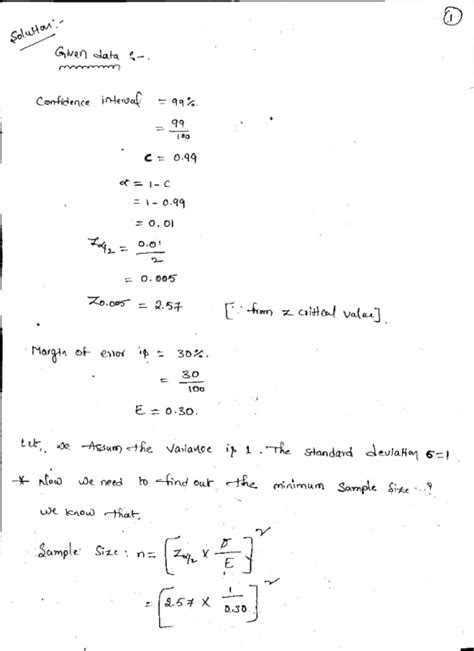 1
Solution:-
Given data :-.
Confidence interval = 99%.
= 99/100
C = 0.99
α = 1-C
= 1-0.99
= 0.01
Zα/2 = 0.01/2
= 0.005
Z0.005 = 2.57 [∵ from z critical value].
Margin of error is = 30%.
= 30/100
E = 0.30.
Let, we Assum the variance is 1. The standard deviation σ=1
* Now we need to find out the minimum sample size...?
we know that,
Sample Size : n = [Zα/2 × σ/E]²
= [2.57 × 1/0.30]²